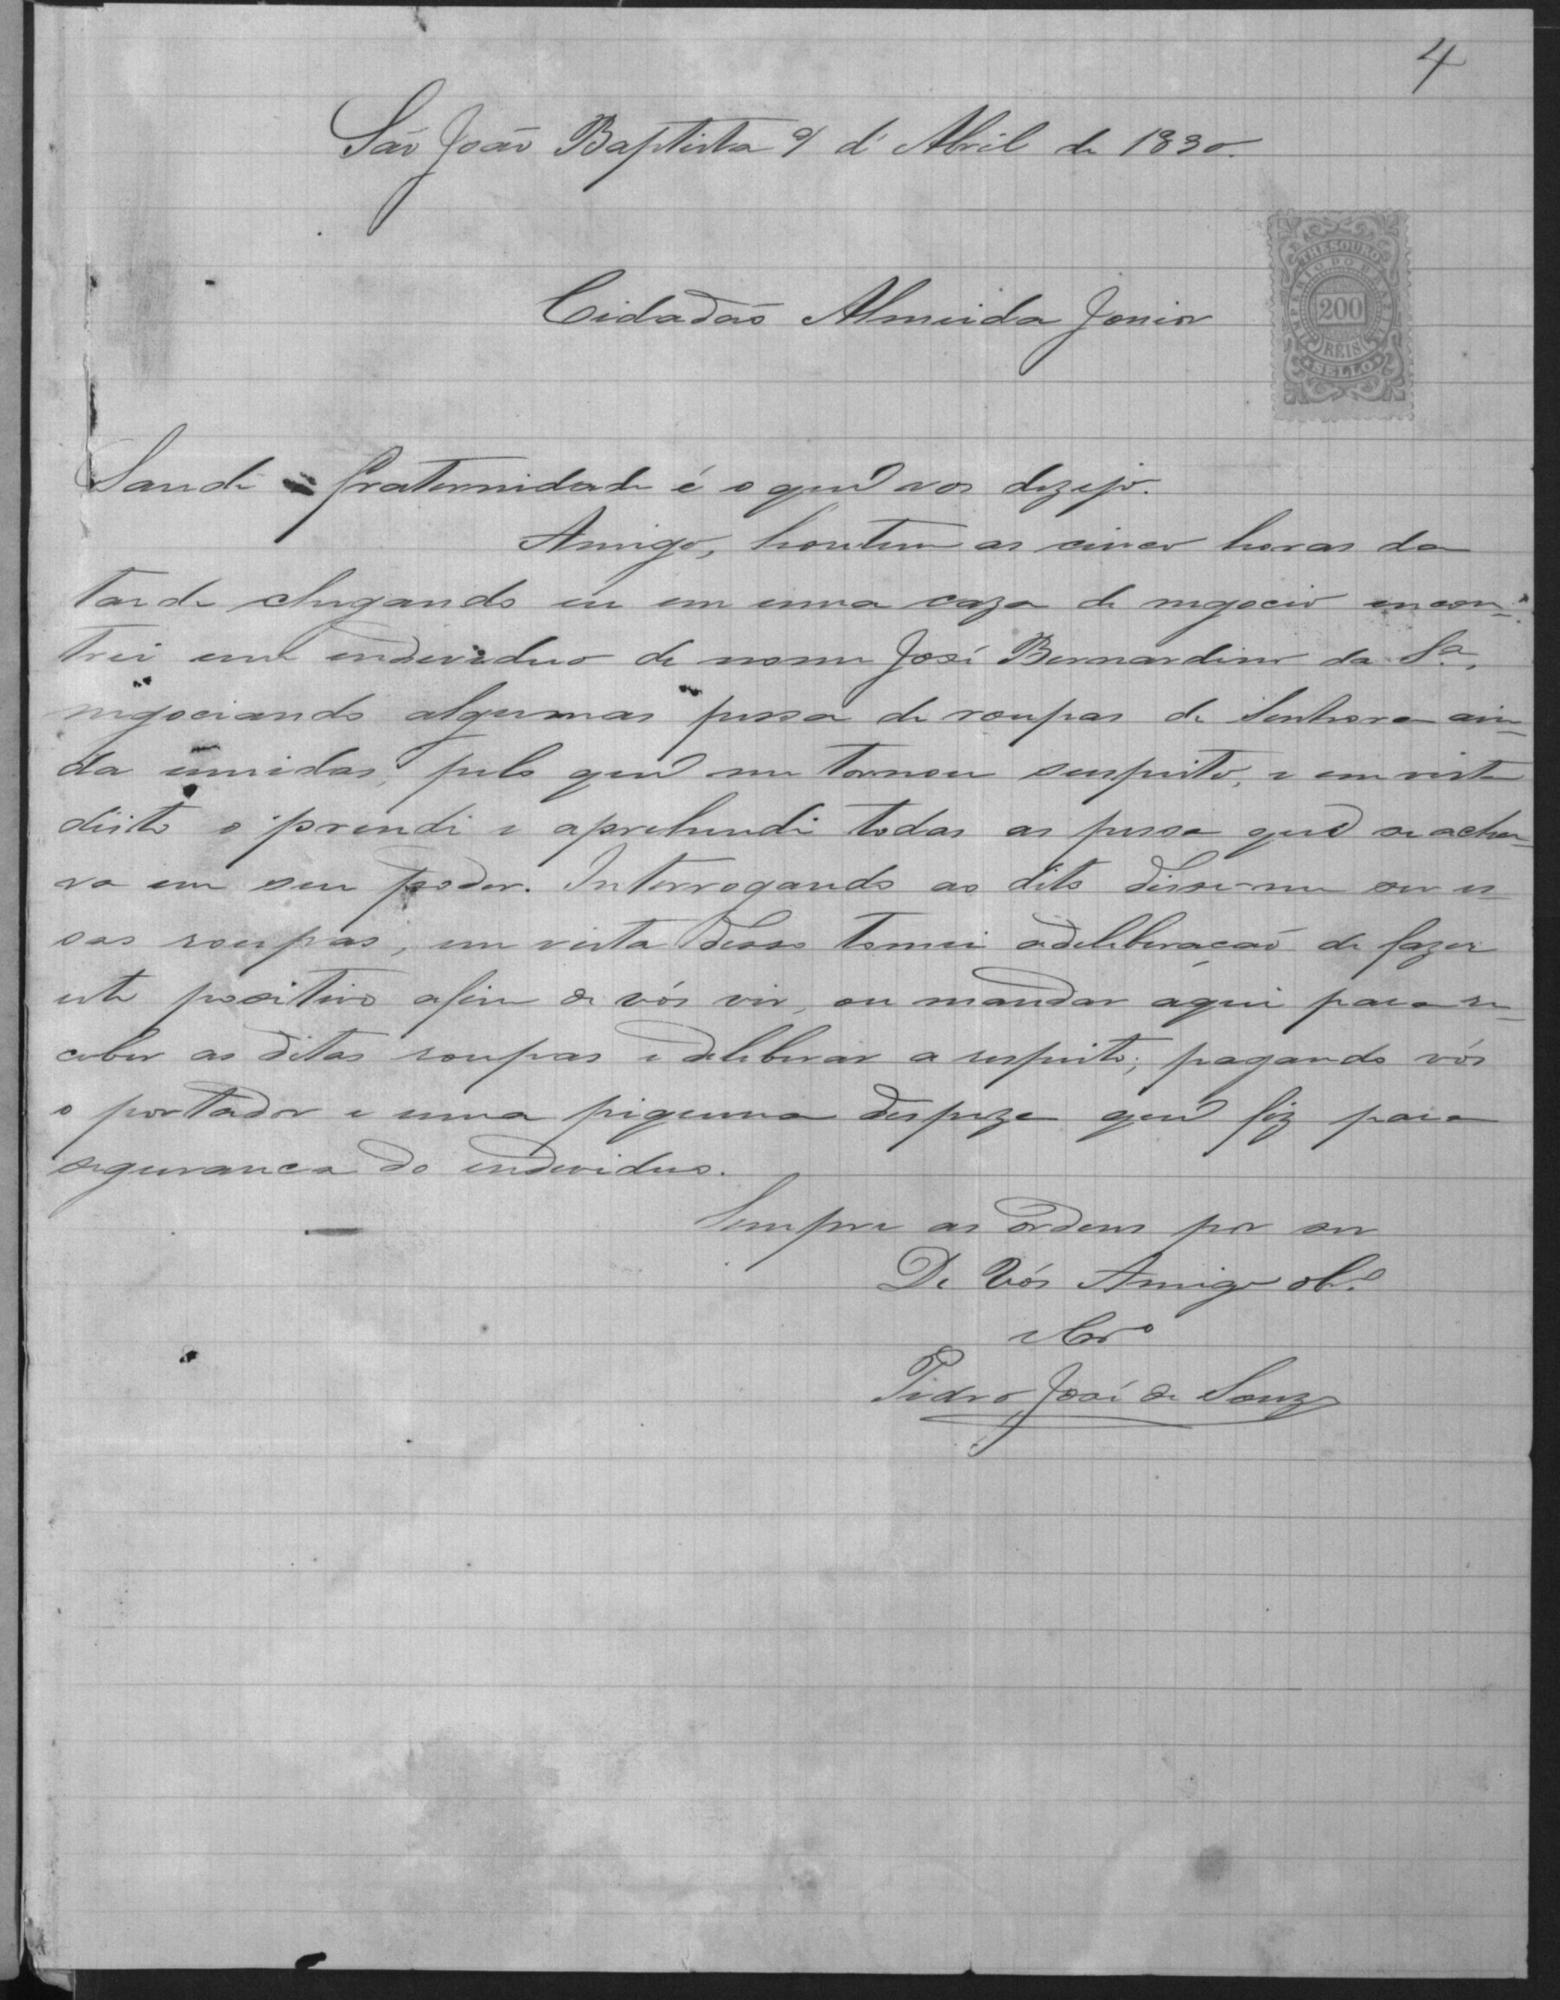 4
São João Baptista 9 d'Abril de 1890.
THESOURO
IMPERIO DO BRAZIL
200
RÉIS
SELLO
Cidadão Almeida Junior
Saude e fraternidade é o que vos dezejo.
Amigo, hontem as cinco horas da
tarde chegando eu em uma caza de negocio encon-
trei um endeviduo de nome José Bernardino da Sª,
negociando algumas pessa de roupas de Senhora ain-
da umidas, pelo que me tornou suspeito, e em vista
disto o prendi e aprehendi todas as pessa que se acha-
va em seu poder. Interrogando ao dito disse-me ser es-
sas roupas, em vista disso tomei a deliberação de fazer
este positivo afim de vós vir, ou mandar aqui para re-
ceber as ditas roupas e deliberar a respeito; pagando vós
o portador e uma piquena despeza que fiz para
seguranca do endeviduo.
Sempre as ordens por ser
De Vós Amigo obº
e Crº
Pedro José de Souza